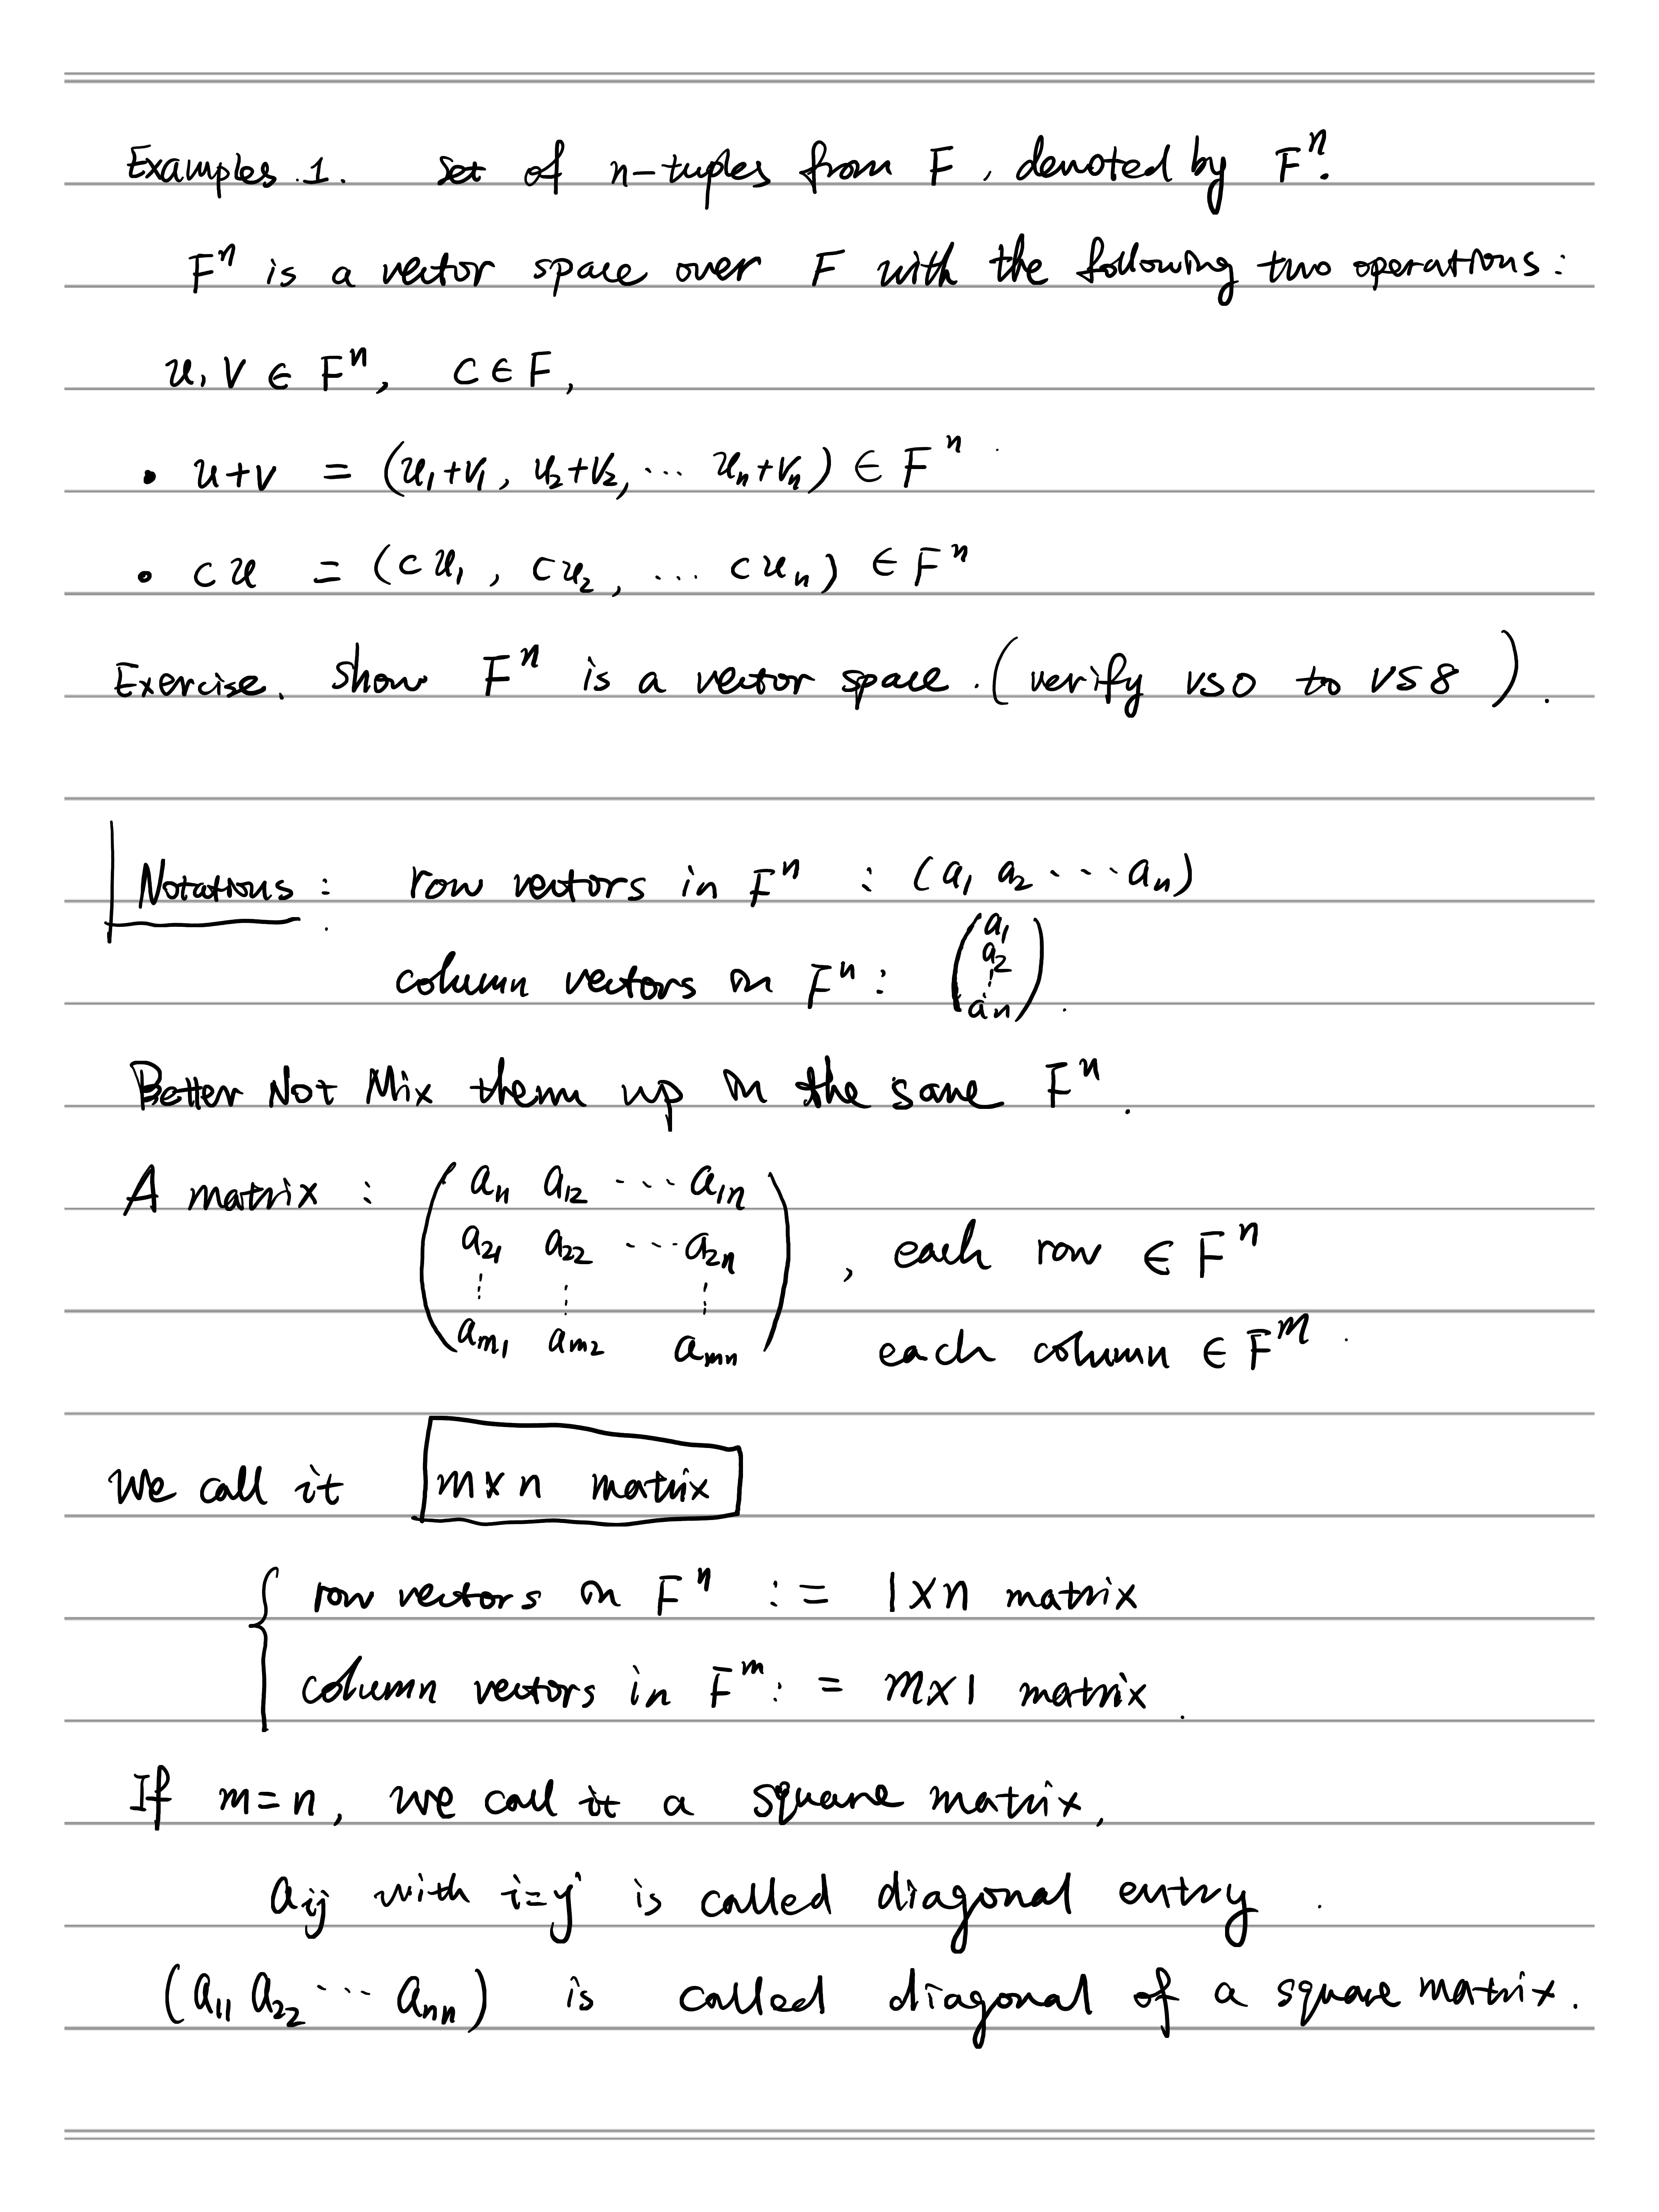 Examples.1. set of n-tuples from F, denoted by Fⁿ.
Fⁿ is a vector space over F with the following two operations:
u, v ∈ Fⁿ, c ∈ F,
• u+v = (u₁+v₁, u₂+v₂, ⋯ uₙ+vₙ) ∈ Fⁿ
• cu = (cu₁, cu₂, ... cuₙ) ∈ Fⁿ
Exercise. Show Fⁿ is a vector space. (verify VS0 to VS8).
Notations: row vectors in Fⁿ : (a₁ a₂ ⋯ aₙ)
column vectors in Fⁿ: (a₁ a₂ ⋮ aₙ).
Better Not Mix them up in the same Fⁿ.
A matrix : (a₁₁ a₁₂ ⋯ a₁ₙ
a₂₁ a₂₂ ⋯ a₂ₙ , each row ∈ Fⁿ
⋮ ⋮ ⋮
aₘ₁ aₘ₂ aₘₙ) each column ∈ Fᵐ.
We call it m×n matrix
{ row vectors in Fⁿ := 1×n matrix
column vectors in Fᵐ := m×1 matrix.
If m=n, we call it a square matrix,
aᵢⱼ with i=j is called diagonal entry.
(a₁₁ a₂₂ ⋯ aₙₙ) is called diagonal of a square matrix.